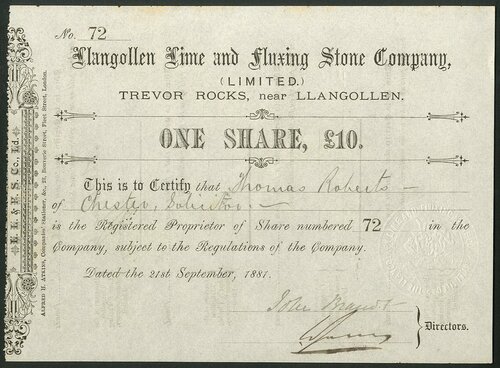 No. 72
Llangollen Lime and Fluxing Stone Company,
(LIMITED.)
TREVOR ROCKS, near LLANGOLLEN.
ONE SHARE, £10.
This is to Certify that Thomas Roberts
of Chester, Solicitor
is the Registered Proprietor of Share numbered 72 in the
Company, subject to the Regulations of the Company.
Dated the 21st September, 1881.
John
Directors.
L. L. & F. S. Co., Ld.
ALFRED H. ATKINS, Companies' Stationer, &c., 22, Bouverie Street, Fleet Street, London.